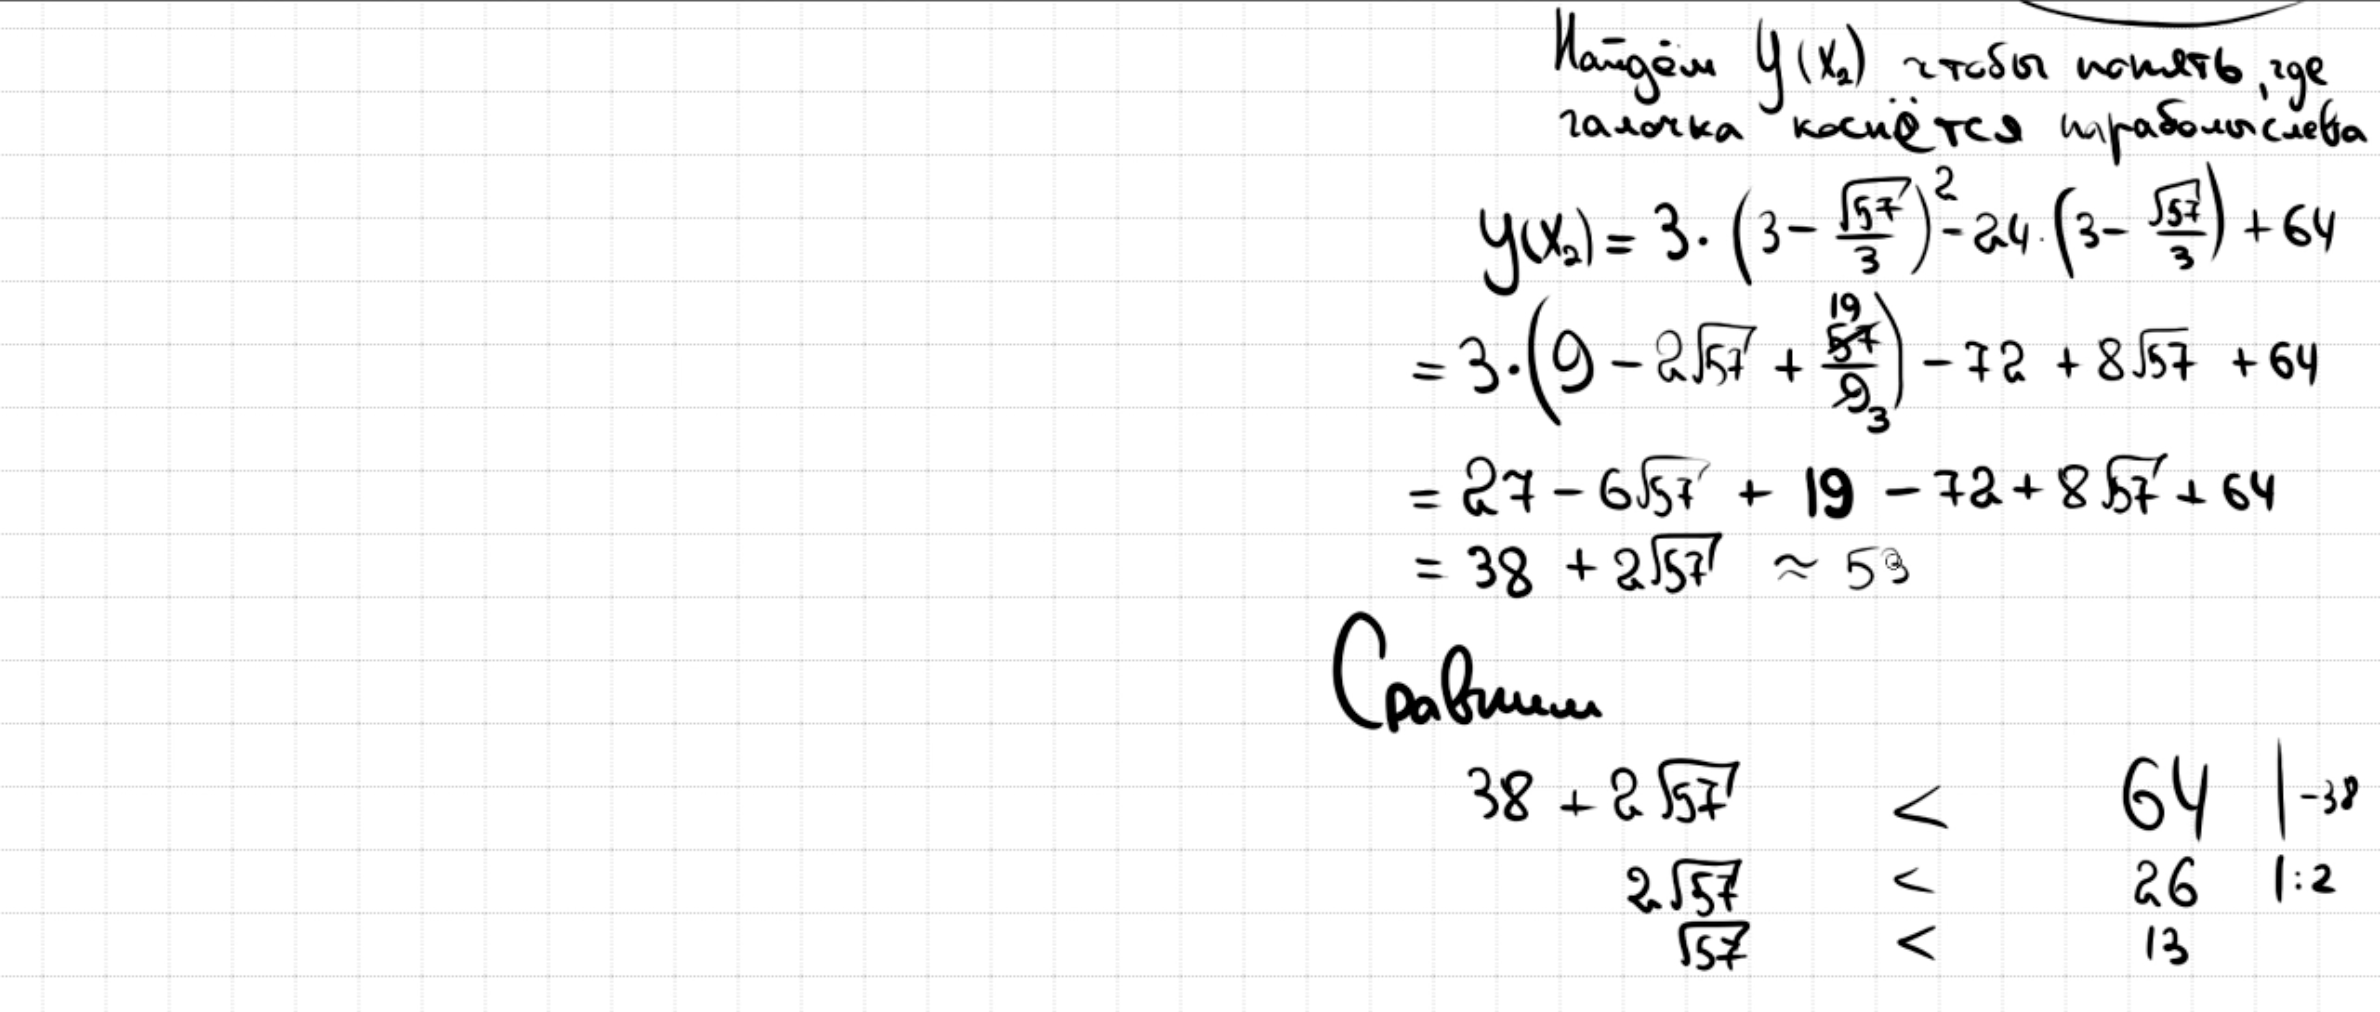 Найдём y(x₂) чтобы понять, где
галочка коснётся параболы слева
y(x₂) = 3·(3 − √57/3)² − 24·(3 − √57/3) + 64
= 3·(9 − 2√57 + 57/9 19 3) − 72 + 8√57 + 64
= 27 − 6√57 + 19 − 72 + 8√57 + 64
= 38 + 2√57 ≈ 53
Сравним
38 + 2√57 < 64 |−38
2√57 < 26 |:2
√57 < 13